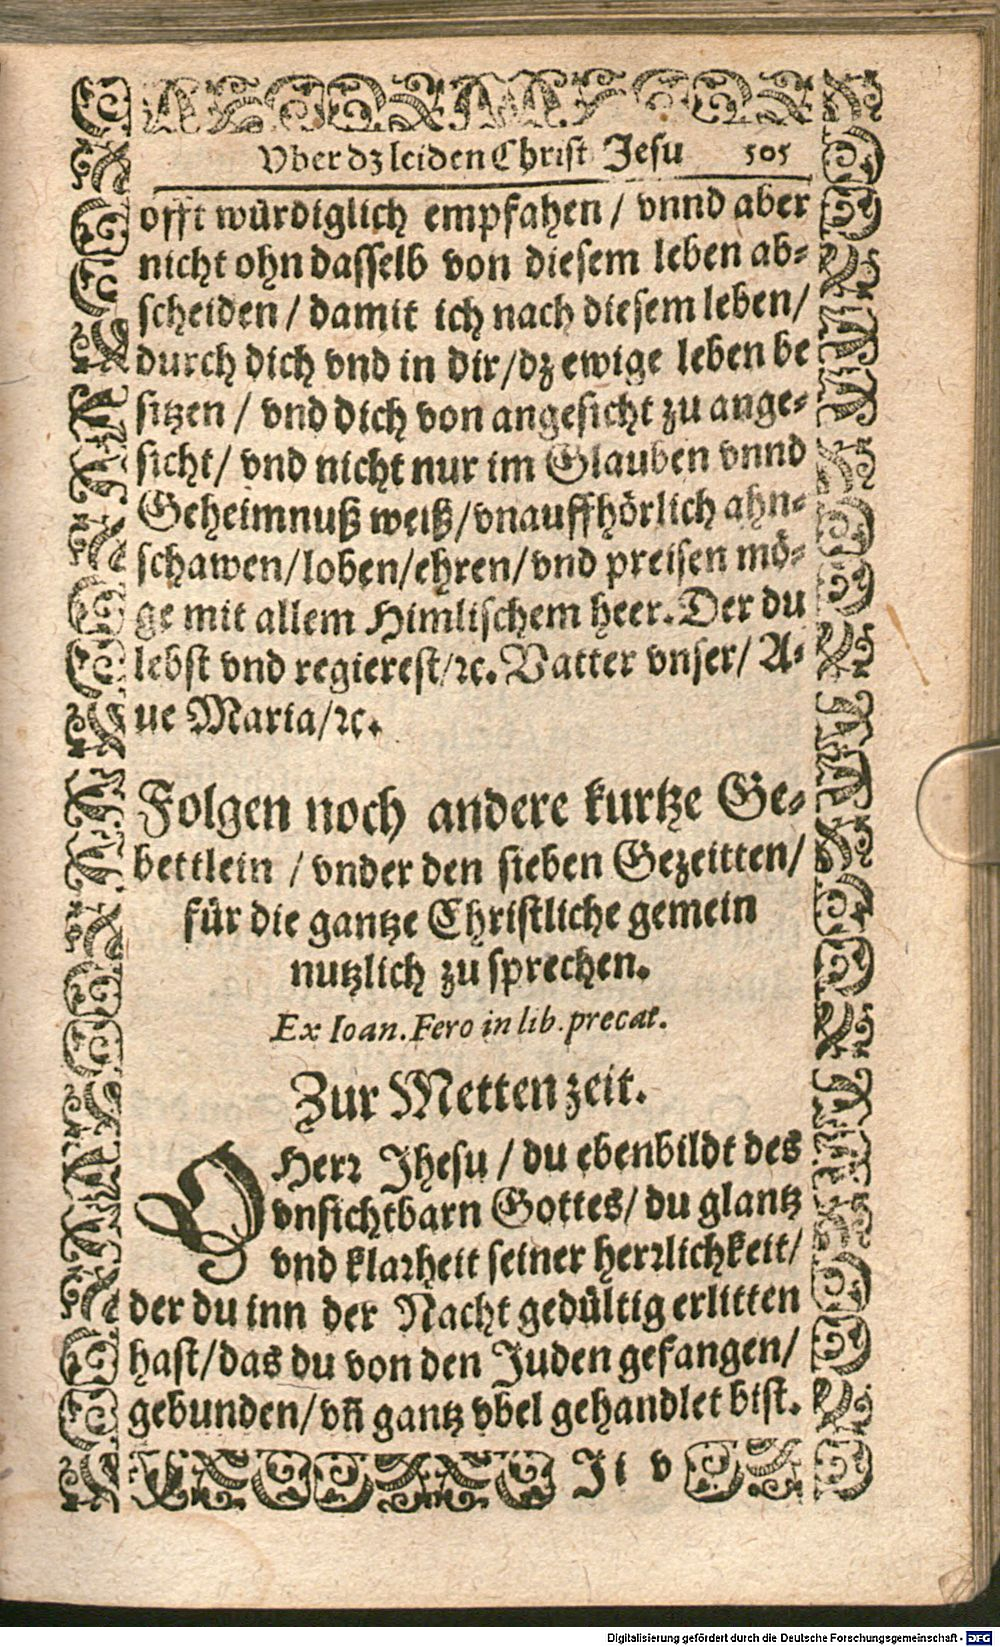 Vber dz leiden Christ Jesu 505
offt würdiglich empfahen / vnnd aber
nicht ohn dasselb von diesem leben ab-
scheiden / damit ich nach diesem leben /
durch dich vnd in dir / dz ewige leben be
sitzen / vnd dich von angesicht zu ange-
sicht / vnd nicht nur im Glauben vnnd
Geheimnuß weiß / vnauffhörlich ahn-
schawen / loben / ehren / vnd preisen mö-
ge mit allem Himlischem heer. Der du
lebst vnd regierest / ꝛc. Vatter vnser / A-
ue Maria / ꝛc.
Folgen noch andere kurtze Ge-
bettlein / vnder den sieben Gezeitten /
für die gantze Christliche gemein
nutzlich zu sprechen.
Ex Ioan. Fero in lib. precat.
Zur Metten zeit.
O Herꝛ Jhesu / du ebenbildt des
vnsichtbarn Gottes / du glantz
vnd klaꝛheit seiner herꝛlichkeit /
der du inn der Nacht gedültig erlitten
hast / das du von den Juden gefangen /
gebunden / vñ gantz vbel gehandlet bist.
Ji v
Digitalisierung gefördert durch die Deutsche Forschungsgemeinschaft - DFG